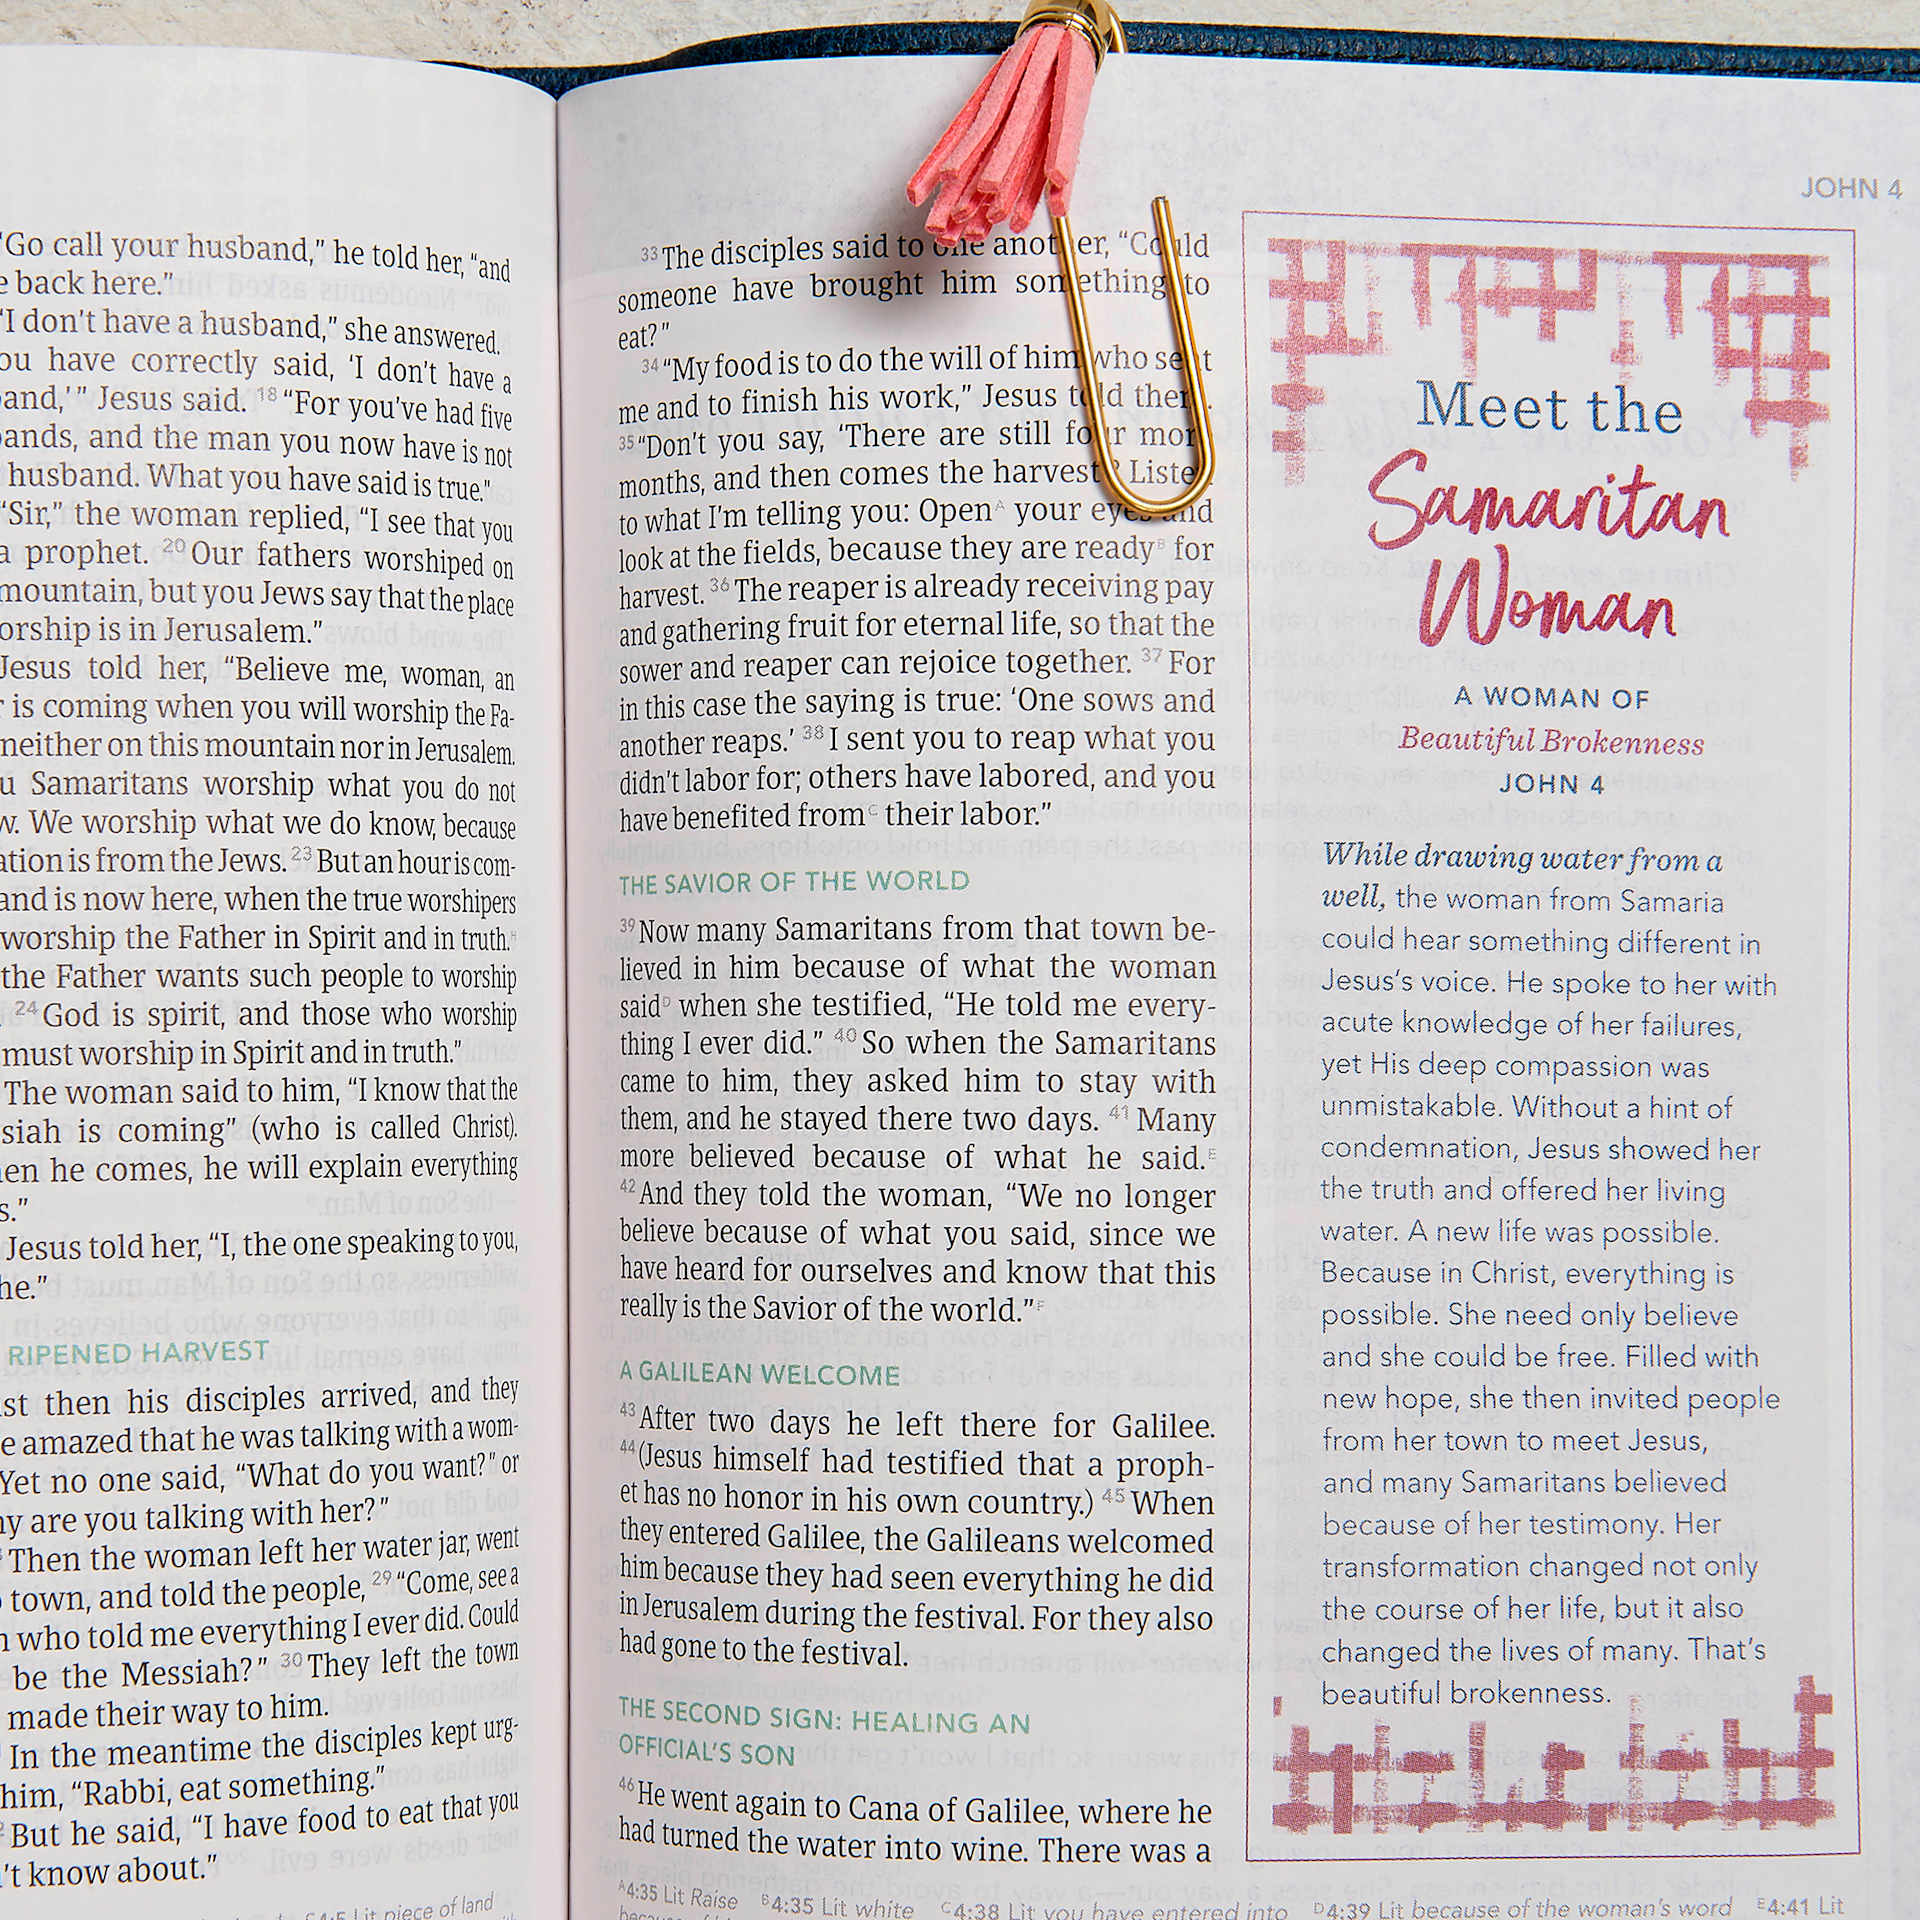 "Go call your husband," he told her, "and
back here."
"I don't have a husband," she answered.
have correctly said, 'I don't have a
Jesus said. 18 "For you've had five
and the man you now have is not
husband. What you have said is true."
"Sir," the woman replied, "I see that you
a prophet. 20 Our fathers worshiped on
mountain, but you Jews say that the place
is in Jerusalem."
Jesus told her, "Believe me, woman, an
is coming when you will worship the Fa-
neither on this mountain nor in Jerusalem.
Samaritans worship what you do not
We worship what we do know, because
is from the Jews. 23 But an hour is com-
and is now here, when the true worshipers
worship the Father in Spirit and in truth.H
the Father wants such people to worship
24 God is spirit, and those who worship
must worship in Spirit and in truth."
The woman said to him, "I know that the
is coming" (who is called Christ).
he comes, he will explain everything
Jesus told her, "I, the one speaking to you,
he."
RIPENED HARVEST
then his disciples arrived, and they
amazed that he was talking with a wom-
Yet no one said, "What do you want?" or
are you talking with her?"
Then the woman left her water jar, went
town, and told the people, 29 "Come, see a
who told me everything I ever did. Could
be the Messiah?" 30 They left the town
made their way to him.
In the meantime the disciples kept urg-
him, "Rabbi, eat something."
But he said, "I have food to eat that you
know about."
Lit piece of land
JOHN 4
33 The disciples said to one another, "Could
someone have brought him something to
eat?"
34 "My food is to do the will of him who sent
me and to finish his work," Jesus told them.
35 "Don't you say, 'There are still four more
months, and then comes the harvest'? Listen
to what I'm telling you: OpenA your eyes and
look at the fields, because they are readyB for
harvest. 36 The reaper is already receiving pay
and gathering fruit for eternal life, so that the
sower and reaper can rejoice together. 37 For
in this case the saying is true: 'One sows and
another reaps.' 38 I sent you to reap what you
didn't labor for; others have labored, and you
have benefited fromC their labor."
THE SAVIOR OF THE WORLD
39 Now many Samaritans from that town be-
lieved in him because of what the woman
saidD when she testified, "He told me every-
thing I ever did." 40 So when the Samaritans
came to him, they asked him to stay with
them, and he stayed there two days. 41 Many
more believed because of what he said.E
42 And they told the woman, "We no longer
believe because of what you said, since we
have heard for ourselves and know that this
really is the Savior of the world."F
A GALILEAN WELCOME
43 After two days he left there for Galilee.
44 (Jesus himself had testified that a proph-
et has no honor in his own country.) 45 When
they entered Galilee, the Galileans welcomed
him because they had seen everything he did
in Jerusalem during the festival. For they also
had gone to the festival.
THE SECOND SIGN: HEALING AN
OFFICIAL'S SON
46 He went again to Cana of Galilee, where he
had turned the water into wine. There was a
A4:35 Lit Raise B4:35 Lit white C4:38 Lit you have entered into D4:39 Lit because of the woman's word E4:41 Lit
Meet the
Samaritan
Woman
A WOMAN OF
Beautiful Brokenness
JOHN 4
While drawing water from a
well, the woman from Samaria
could hear something different in
Jesus's voice. He spoke to her with
acute knowledge of her failures,
yet His deep compassion was
unmistakable. Without a hint of
condemnation, Jesus showed her
the truth and offered her living
water. A new life was possible.
Because in Christ, everything is
possible. She need only believe
and she could be free. Filled with
new hope, she then invited people
from her town to meet Jesus,
and many Samaritans believed
because of her testimony. Her
transformation changed not only
the course of her life, but it also
changed the lives of many. That's
beautiful brokenness.